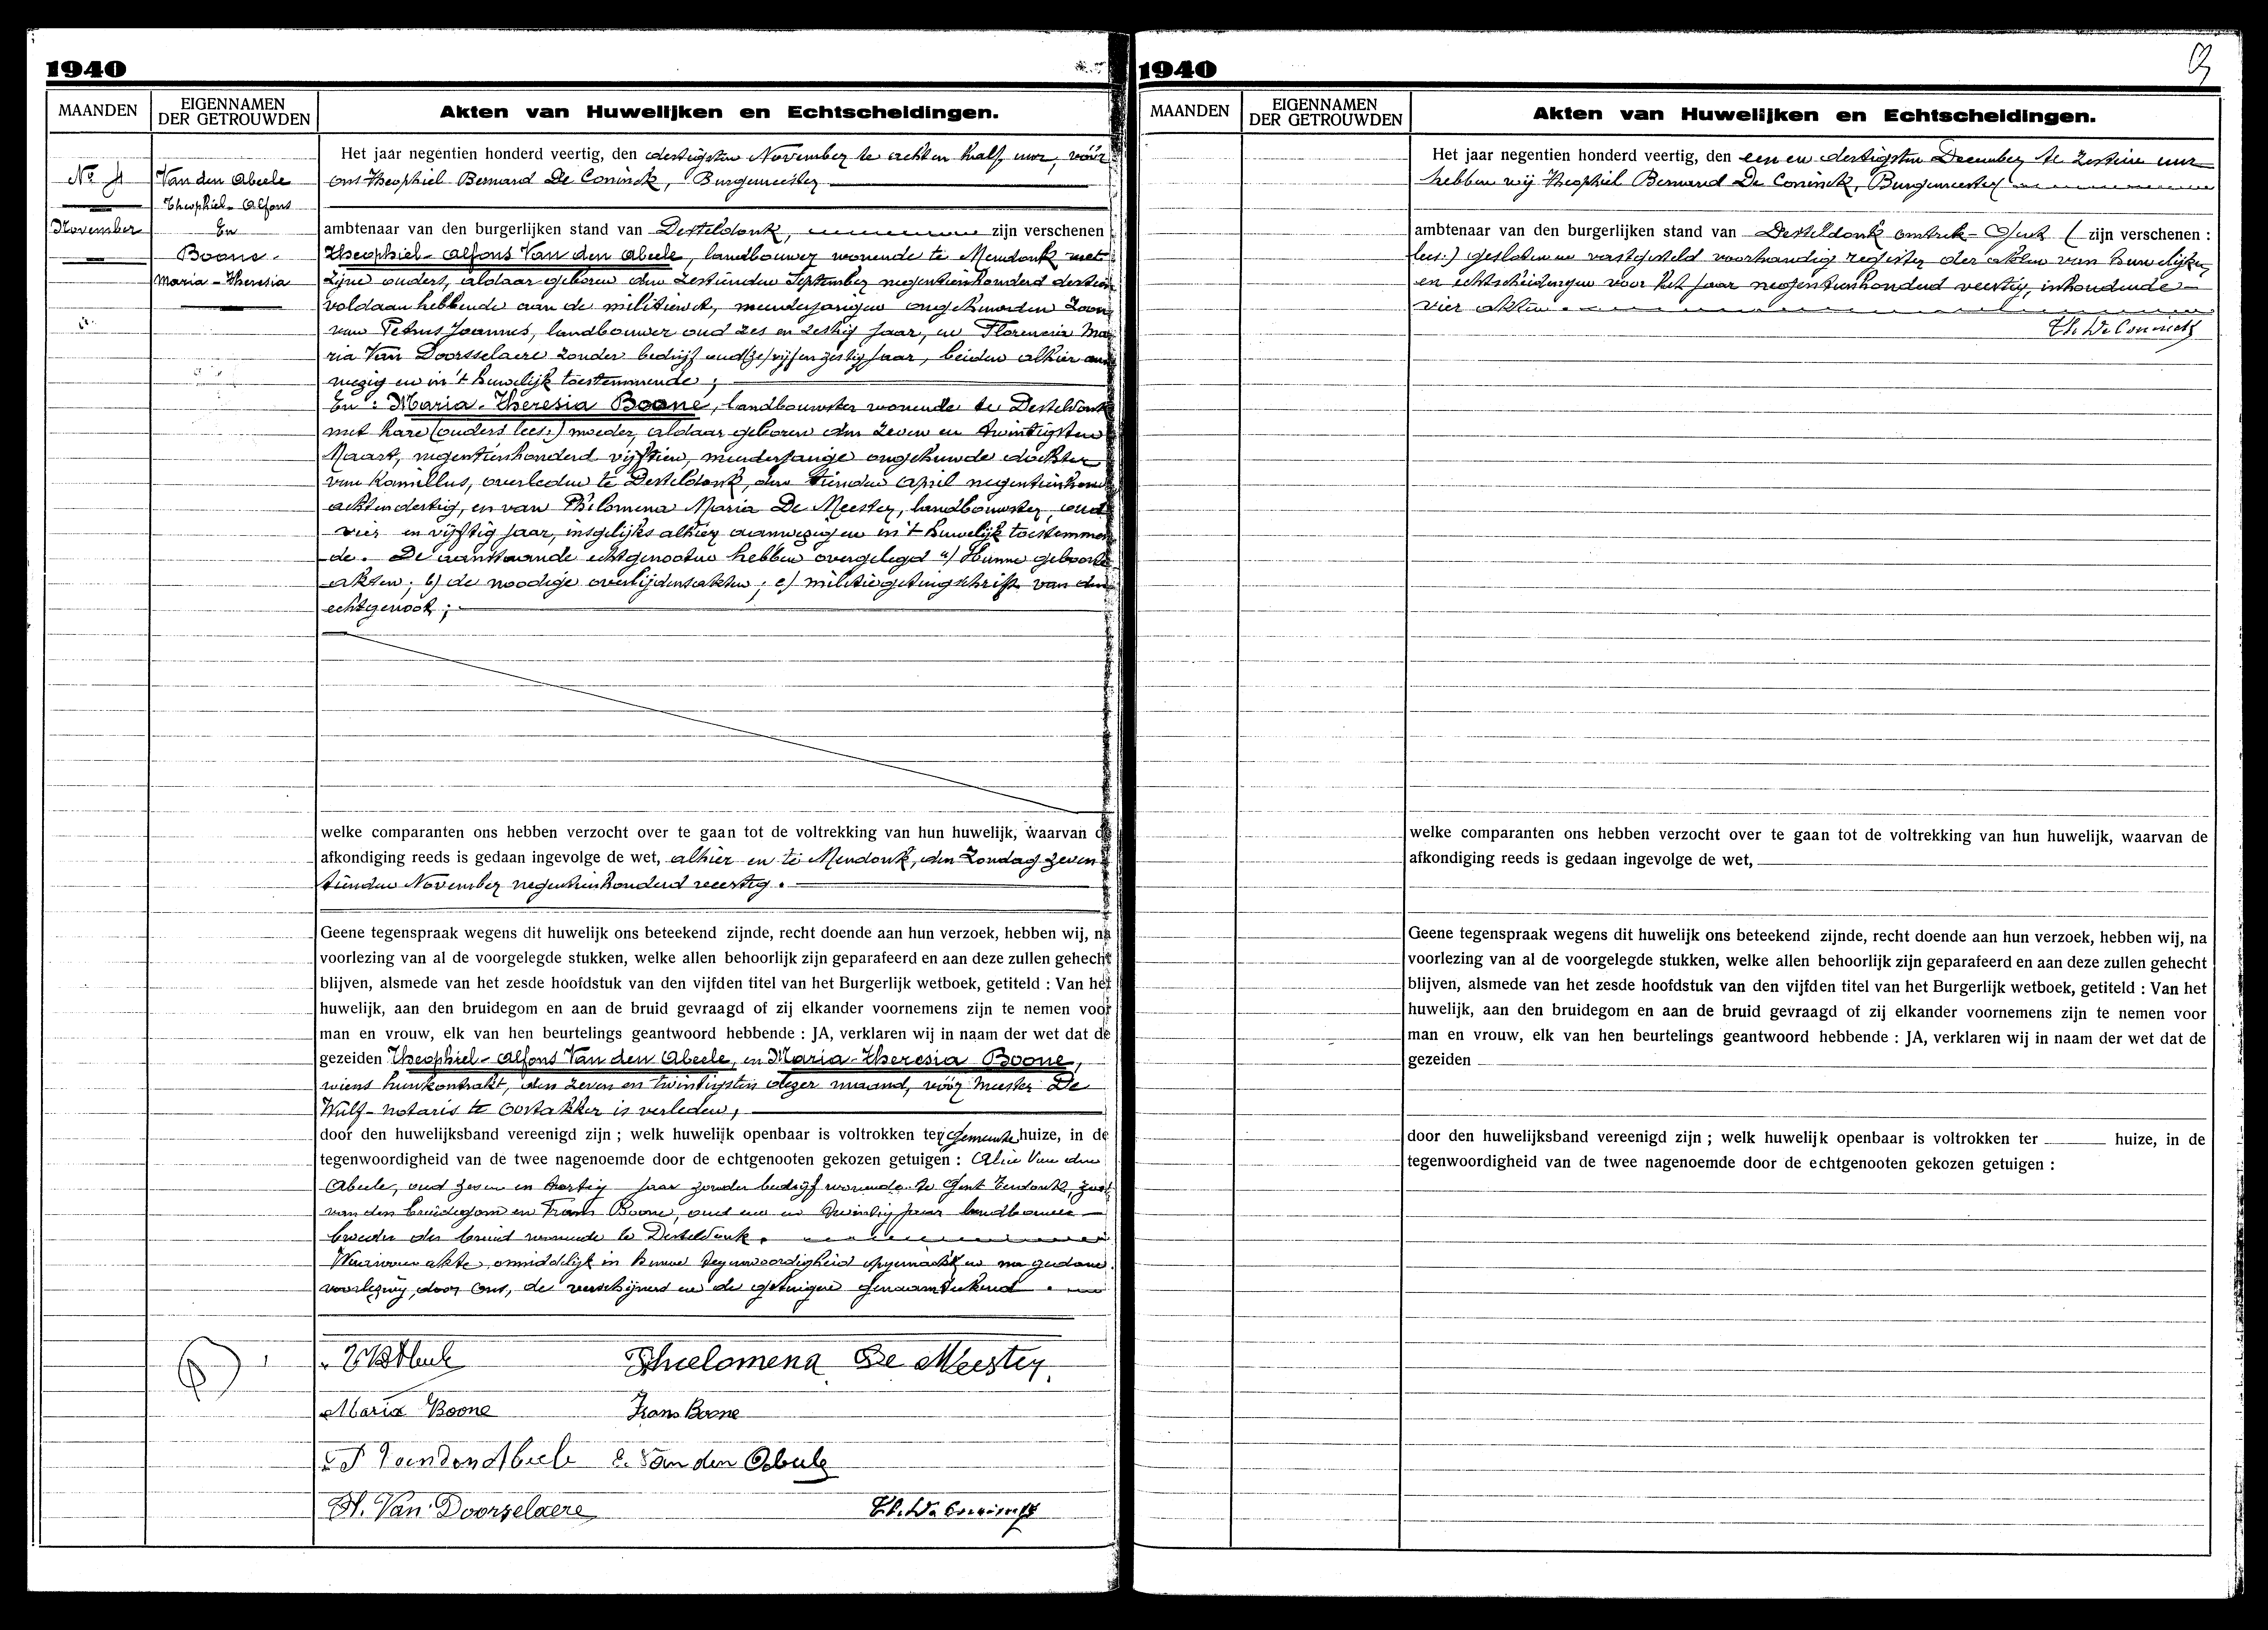 1940
MAANDEN
EIGENNAMEN
DER GETROUWDEN
Akten van Huwelijken en Echtscheidingen.
No 4
November
Van den Abeele
Theophiel-Alfons
En
Boone
Maria-Theresia
Het jaar negentien honderd veertig, den dertigsten November te acht en half uur, vóór
ons Theophiel Bernard De Coninck, Burgemeester
ambtenaar van den burgerlijken stand van Desteldonk, zijn verschenen :
Theophiel-Alfons Van den Abeele, landbouwer wonende te Mendonk met
zijne ouders, aldaar geboren den zestienden September negentienhonderd dertien
voldaan hebbende aan de militiewet, meerderjarigen ongehuwden zoon
van Petrus Joannes, landbouwer oud zes en zestig jaar, en Florencia Ma
ria Van Doorsselaere zonder bedrijf oud vijf en zestig jaar, beiden alhier aan
wezig en in 't huwelijk toestemmende ;
En : Maria-Theresia Boone, landbouwster wonende te Desteldonk
met hare (ouders lees:) moeder, aldaar geboren den zeven en twintigsten
Maart, negentienhonderd vijftien, meerderjarige ongehuwde dochter
van Kamillus, overleden te Desteldonk, den tienden April negentienhond
achtendertig, en van Philomena Maria De Meester, landbouwster, oud
vier en vijftig jaar, insgelijks alhier aanwezig en in 't huwelijk toestemmen
de. De aanstaande echtgenooten hebben overgelegd a) Hunne geboorte
akten; b) de noodige overlijdensakten; c) militiegetuigschrift van den
echtgenoot ;
welke comparanten ons hebben verzocht over te gaan tot de voltrekking van hun huwelijk, waarvan de
afkondiging reeds is gedaan ingevolge de wet, alhier en te Mendonk, den Zondag zeven
tienden November negentienhonderd veertig.
Geene tegenspraak wegens dit huwelijk ons beteekend zijnde, recht doende aan hun verzoek, hebben wij, na
voorlezing van al de voorgelegde stukken, welke allen behoorlijk zijn geparafeerd en aan deze zullen gehecht
blijven, alsmede van het zesde hoofdstuk van den vijfden titel van het Burgerlijk wetboek, getiteld : Van het
huwelijk, aan den bruidegom en aan de bruid gevraagd of zij elkander voornemens zijn te nemen voor
man en vrouw, elk van hen beurtelings geantwoord hebbende : JA, verklaren wij in naam der wet dat de
gezeiden Theophiel-Alfons Van den Abeele, en Maria-Theresia Boone,
wiens huwkontrakt, den zeven en twintigsten dezer maand, vóór Meester De
Wulf-notaris te Oostakker is verleden,
door den huwelijksband vereenigd zijn ; welk huwelijk openbaar is voltrokken ter Gemeente huize, in de
tegenwoordigheid van de twee nagenoemde door de echtgenooten gekozen getuigen : Alice Van den
Abeele, oud zeven en dertig jaar zonder bedrijf wonende te Gent
van den bruidegom en Frans Boone, oud een en twintig jaar landbouwer
broeder der bruid wonende te Desteldonk.
Waarvan akte, onmiddelijk in hunne tegenwoordigheid opgemaakt en na gedane
voorlezing, door ons, de verschijners en de getuigen genaamteekend.
Phielomena De Meester
Maria Boone
Frans Boone
P Van den Abeele
Van den Abeele
Van Doorselaere
Th. De Coninck
1940
MAANDEN
EIGENNAMEN
DER GETROUWDEN
Akten van Huwelijken en Echtscheidingen.
Het jaar negentien honderd veertig, den een en dertigsten December te zestien uur
hebben wij Theophiel Bernard De Coninck, Burgemeester
ambtenaar van den burgerlijken stand van Desteldonk omtrek-Gent ( zijn verschenen :
lees:) gesloten en vastgesteld voorhandig register der akten van huwelijken
en echtscheidingen voor het jaar negentienhonderd veertig, inhoudende
vier akten.
Th. De Coninck
welke comparanten ons hebben verzocht over te gaan tot de voltrekking van hun huwelijk, waarvan de
afkondiging reeds is gedaan ingevolge de wet,
Geene tegenspraak wegens dit huwelijk ons beteekend zijnde, recht doende aan hun verzoek, hebben wij, na
voorlezing van al de voorgelegde stukken, welke allen behoorlijk zijn geparafeerd en aan deze zullen gehecht
blijven, alsmede van het zesde hoofdstuk van den vijfden titel van het Burgerlijk wetboek, getiteld : Van het
huwelijk, aan den bruidegom en aan de bruid gevraagd of zij elkander voornemens zijn te nemen voor
man en vrouw, elk van hen beurtelings geantwoord hebbende : JA, verklaren wij in naam der wet dat de
gezeiden
door den huwelijksband vereenigd zijn ; welk huwelijk openbaar is voltrokken ter huize, in de
tegenwoordigheid van de twee nagenoemde door de echtgenooten gekozen getuigen :